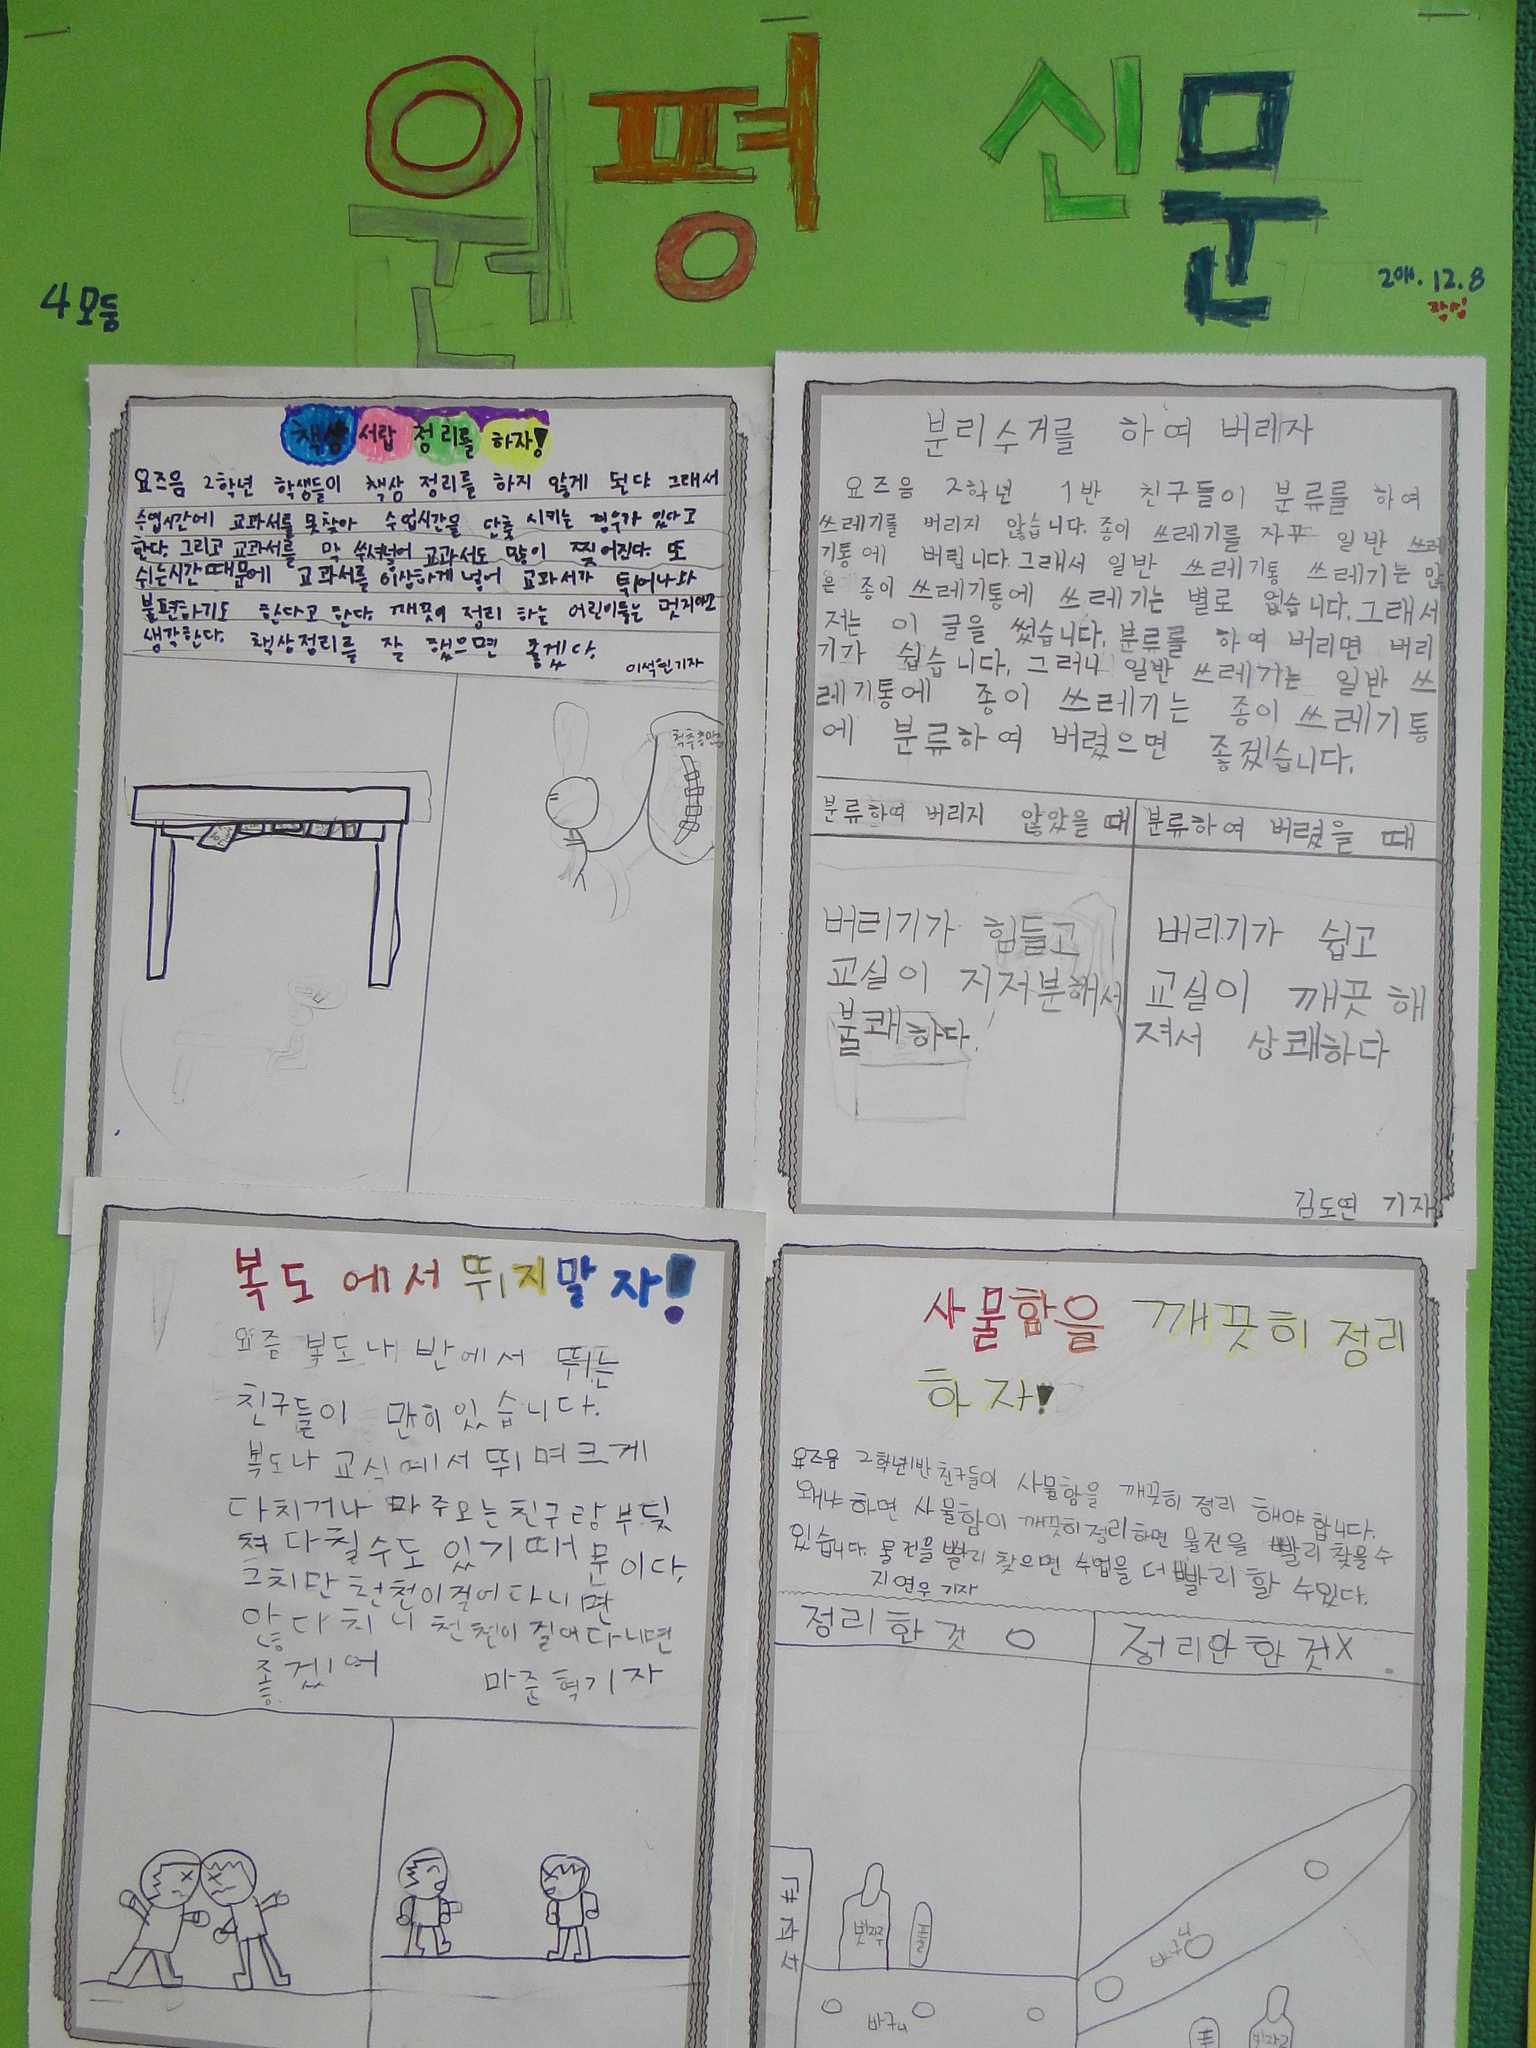 원평 신문
4모둠
2011. 12. 8
책상 서랍 정리를 하자!
요즈음 2학년 학생들이 책상 정리를 하지 않게 된다 그래서
수업시간에 교과서를 못찾아 수업시간을 단축 시키는 경우가 있다고
한다. 그리고 교과서를 막 쑤셔넣어 교과서도 많이 찢어진다. 또
쉬는시간 때문에 교과서를 이상하게 넣어 교과서가 튀어나와
불편하기도 한다고 한다. 깨끗이 정리 하는 어린이들은 멋지다고
생각한다. 책상정리를 잘 했으면 좋겠다.
이석원기자
분리수거를 하여 버레자
요즈음 2학년 1반 친구들이 분류를 하여
쓰레기를 버리지 않습니다. 종이 쓰레기를 자꾸 일반 쓰레
기통에 버립니다. 그래서 일반 쓰레기통 쓰레기는 많
은 종이 쓰레기통에 쓰레기는 별로 없습니다. 그래서
저는 이 글을 썼습니다. 분류를 하여 버리면 버리
기가 쉽습니다. 그러니 일반 쓰레기는 일반 쓰
레기통에 종이 쓰레기는 종이 쓰레기통
에 분류하여 버렸으면 좋겠습니다.
분류하여 버리지 않았을 때
분류하여 버렸을 때
버리기가 힘들고
교실이 지저분해서
불쾌하다.
버리기가 쉽고
교실이 깨끗해
져서 상쾌하다
김도연 기자
복도에서 뛰지말자!
요즘 복도나 반에서 뛰는
친구들이 만히있습니다.
복도나 교식에서 뛰며크게
다치거나 마주오는친구랑부딫
쳐 다칠수도 있기때문이다.
그치만 천천이걷어다니면
안다치니 천천이 걷어다니면
좋겠어
마준혁기자
사물함을 깨끗히 정리
하자!
요즈음 2학년1반 친구들이 사물함을 깨끗히 정리 해야 합니다.
왜냐하면 사물함이 깨끗히정리하면 물건을 빨리 찾을수
있습니다. 물건을 빨리 찾으면 수업을 더 빨리 할 수있다.
지연우 기자
정리한것 O
정리안한것X
교과서
풀
바구니
바구니
풀